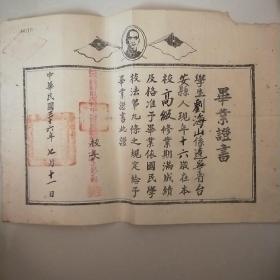 畢業證書
學生劉海山係遼寧省台
安縣人現年十六歲在本
校高級修業期滿成績
及格准予畢業依國民學
校法第九條之規定給予
畢業證書此證
校長
中華民國三十六年七月十一日